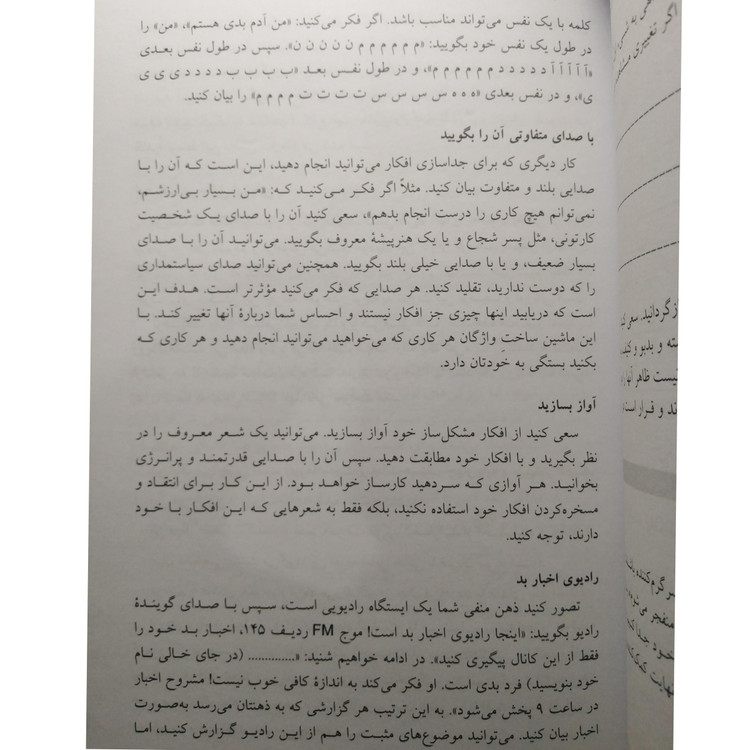 کلمه با یک نفس می‌تواند مناسب باشد. اگر فکر می‌کنید: «من آدم بدی هستم»، «من» را
در طول یک نفس خود بگویید: «م م م م م م ن ن ن ن ن». سپس در طول نفس بعدی
«آ آ آ آ آ د د د د د م م م م م م»، و در طول نفس بعد «ب ب ب ب د د د د ی ی ی
ی»، و در نفس بعدی «ه ه ه س س س س س ت ت ت ت م م م م» را بیان کنید.
با صدای متفاوتی آن را بگویید
کار دیگری که برای جداسازی افکار می‌توانید انجام دهید، این است که آن را با
صدایی بلند و متفاوت بیان کنید. مثلاً اگر فکر می‌کنید که: «من بسیار بی‌ارزشم،
نمی‌توانم هیچ کاری را درست انجام بدهم»، سعی کنید آن را با صدای یک شخصیت
کارتونی، مثل پسر شجاع و یا یک هنرپیشۀ معروف بگویید. می‌توانید آن را با صدای
بسیار ضعیف، و یا با صدایی خیلی بلند بگویید. همچنین می‌توانید صدای سیاستمداری
را که دوست ندارید، تقلید کنید. هر صدایی که فکر می‌کنید مؤثرتر است. هدف این
است که دریابید اینها چیزی جز افکار نیستند و احساس شما دربارۀ آنها تغییر کند. با
این ماشین ساخت واژگان هر کاری که می‌خواهید می‌توانید انجام دهید و هر کاری که
بکنید بستگی به خودتان دارد.
آواز بسازید
سعی کنید از افکار مشکل‌ساز خود آواز بسازید. می‌توانید یک شعر معروف را در
نظر بگیرید و با افکار خود مطابقت دهید. سپس آن را با صدایی قدرتمند و پرانرژی
بخوانید. هر آوازی که سردهید کارساز خواهد بود. از این کار برای انتقاد و
مسخره‌کردن افکار خود استفاده نکنید، بلکه فقط به شعرهایی که این افکار با خود
دارند، توجه کنید.
رادیوی اخبار بد
تصور کنید ذهن منفی شما یک ایستگاه رادیویی است، سپس با صدای گویندۀ
رادیو بگویید: «اینجا رادیوی اخبار بد است! موج FM ردیف ۱۴۵، اخبار بد خود را
فقط از این کانال پیگیری کنید». در ادامه خواهیم شنید: «............. (در جای خالی نام
خود بنویسید) فرد بدی است. او فکر می‌کند به اندازۀ کافی خوب نیست! مشروح اخبار
در ساعت ۹ پخش می‌شود». به این ترتیب هر گزارشی که به ذهنتان می‌رسد به‌صورت
اخبار بیان کنید. می‌توانید موضوع‌های مثبت را هم از این رادیو گزارش کنید، اما